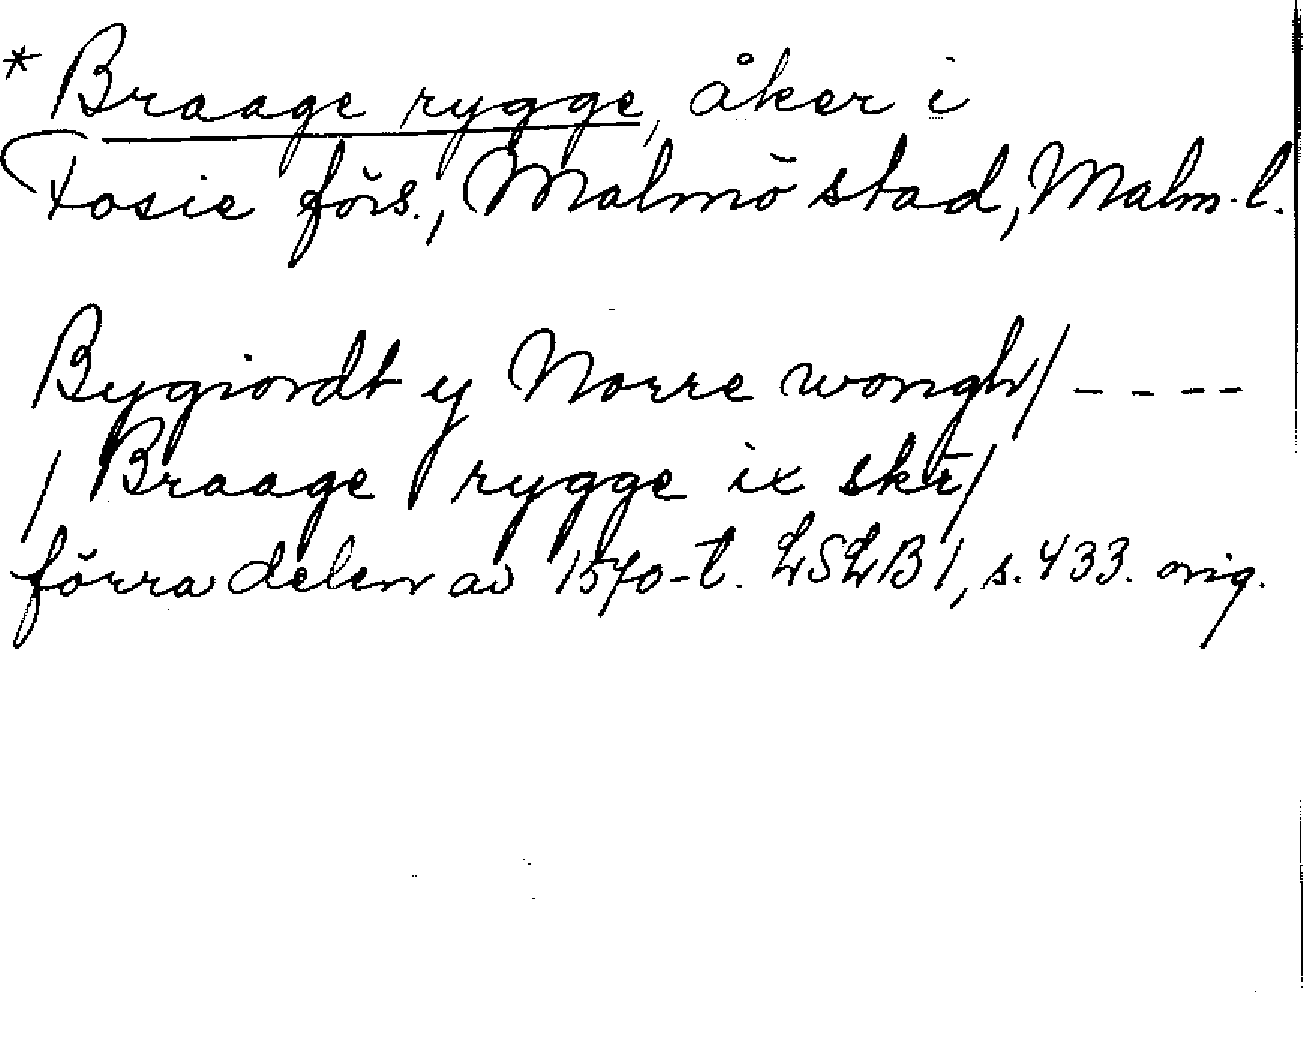 * Braage rygge, åker i
Fosie förs., Malmö stad, Malm. l.
Bygiordt y Norre wongh/ ----
/ Braage rygge ix skr̄/
förra delen av 1570-t. LSLB 1, s. 433. orig.